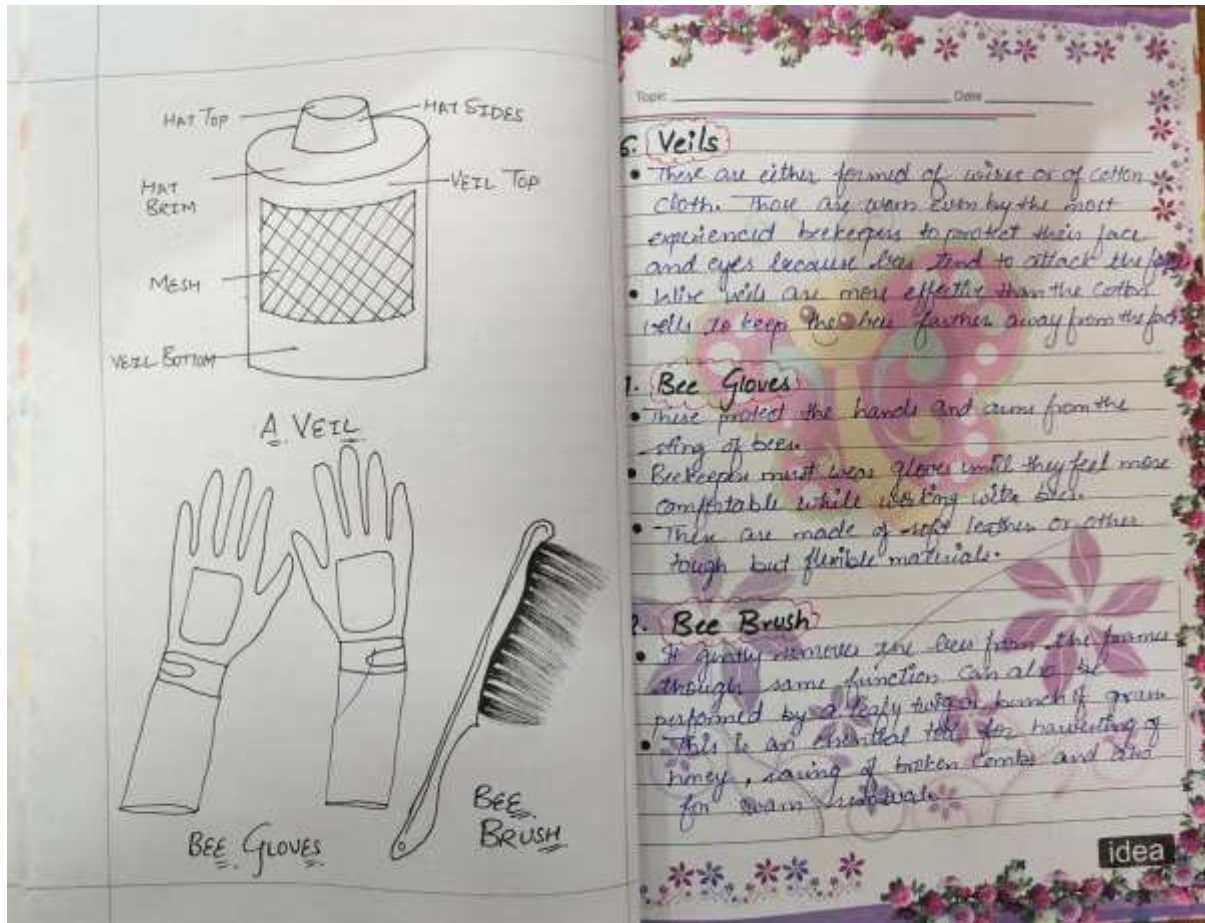 HAT TOP
HAT SIDES
HAT
BRIM
VEIL TOP
MESH
VEIL BOTTOM
A VEIL
BEE GLOVES
BEE
BRUSH
Topic Date
Veils
• These are either formed of wires or of cotton
cloth. These are worn even by the most
experienced beekeepers to protect their face
and eyes because bees tend to attack the face
• Wire veils are more effective than the cotton
veils to keep the bees farther away from the face
Bee Gloves
• These protect the hands and arms from the
sting of bees.
• Beekeepers must wear gloves until they feel more
comfortable while working with bees.
• These are made of soft leather or other
tough but flexible materials.
Bee Brush
• It gently removes the bees from the frames
though same function can also be
performed by a leafy twig or bunch of grass.
• This is an essential tool for harvesting of
honey, saving of broken combs and also
for swarm removal.
idea